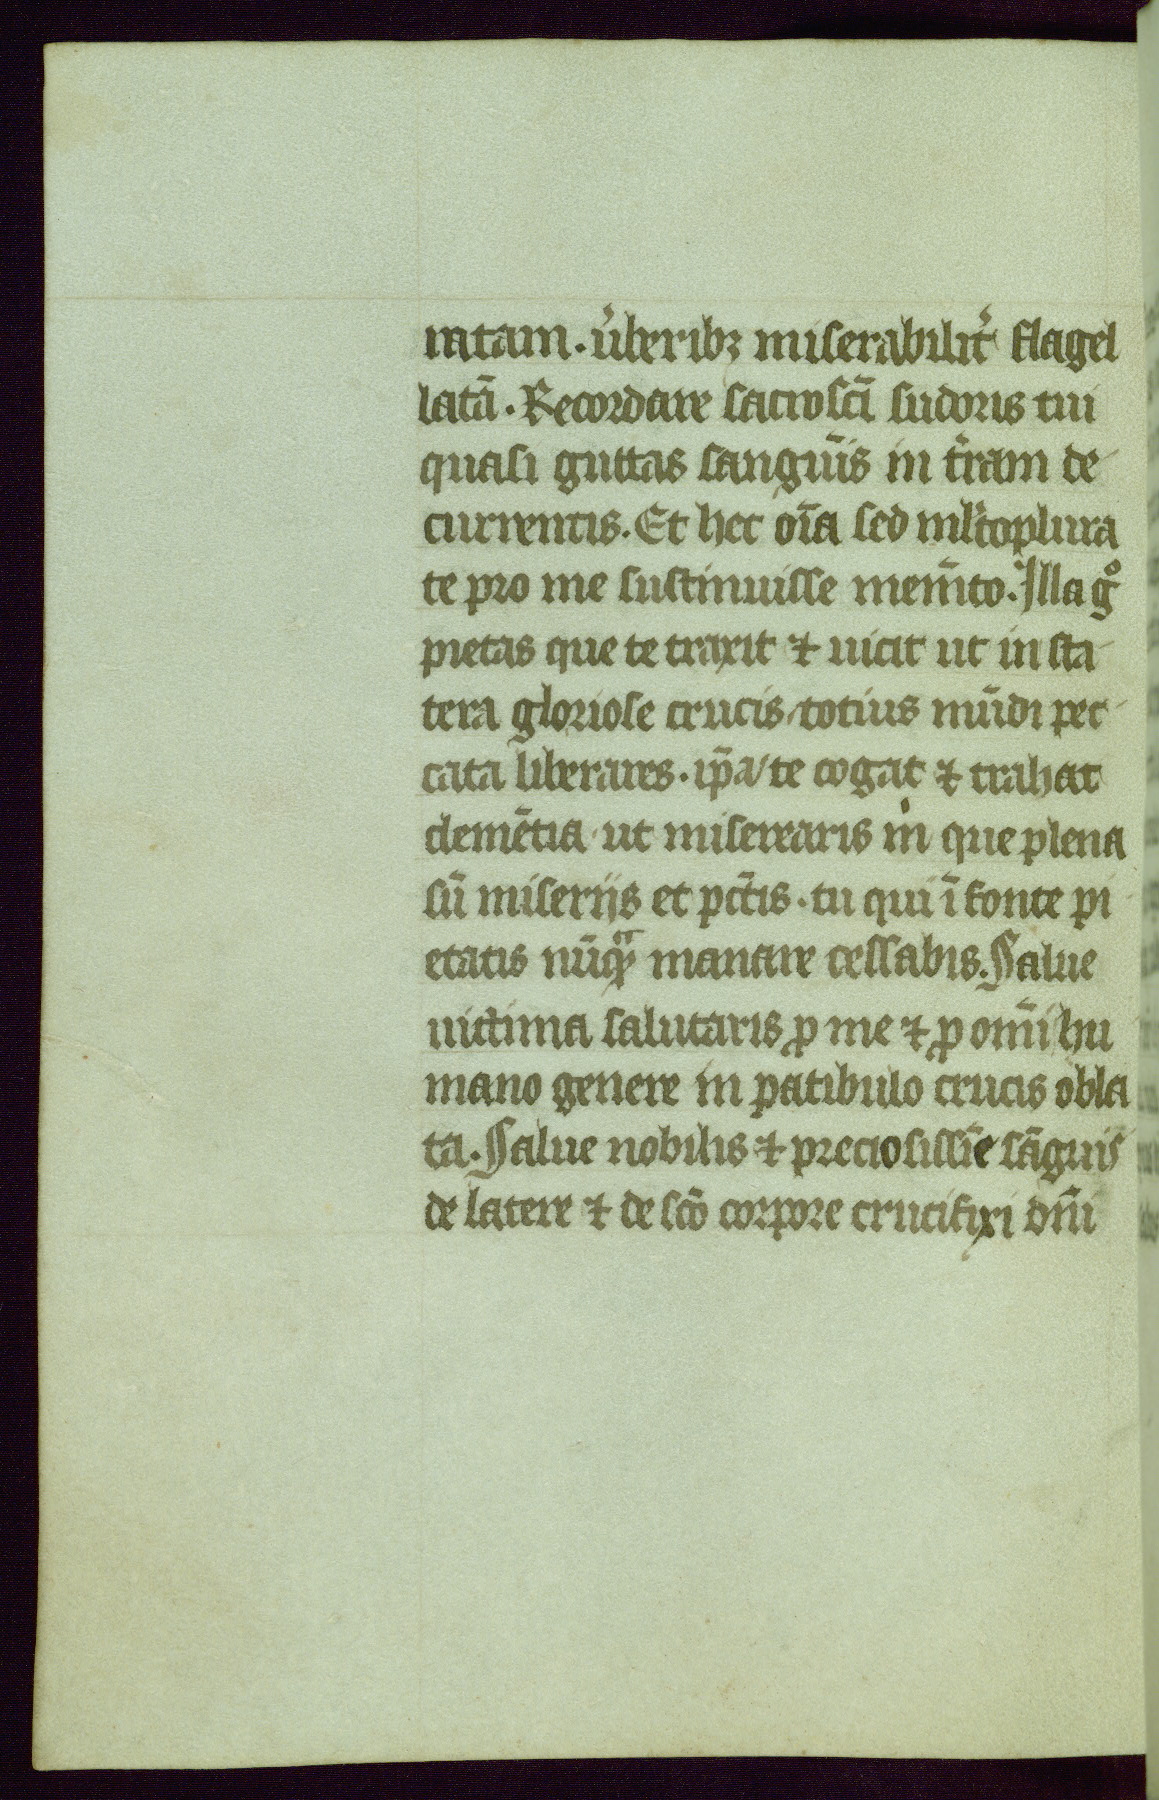 niatam. v̾beribꝫ miserabilit̾ flagel
latā. Recordare sacrosc̄i sudoris tui
quasi guttas sangu̅is in t̾ram de
currentis. Et hec oīa sed ml̾toplura
te pro me sustinuisse mem̄to. Illa gͦ
pietas que te traxit ⁊ uicit ut in sta
tera gloriose crucis totius mūdi pec
cata liberares. ip̄a te cogat ⁊ trahat
clemētia ut miserearis mi̇ que plena
sū miseriis et pc̄tis. tu qui ī fonte pi
etatis nūqͣ manare cessabis. Salue
uictima salutaris ꝓ me ⁊ ꝓ omī hu
mano genere in patibulo crucis obla
ta. Salue nobilis ⁊ preciosissīe sāguis
de latere ⁊ de sc̄o corpore crucifixi dn̄i